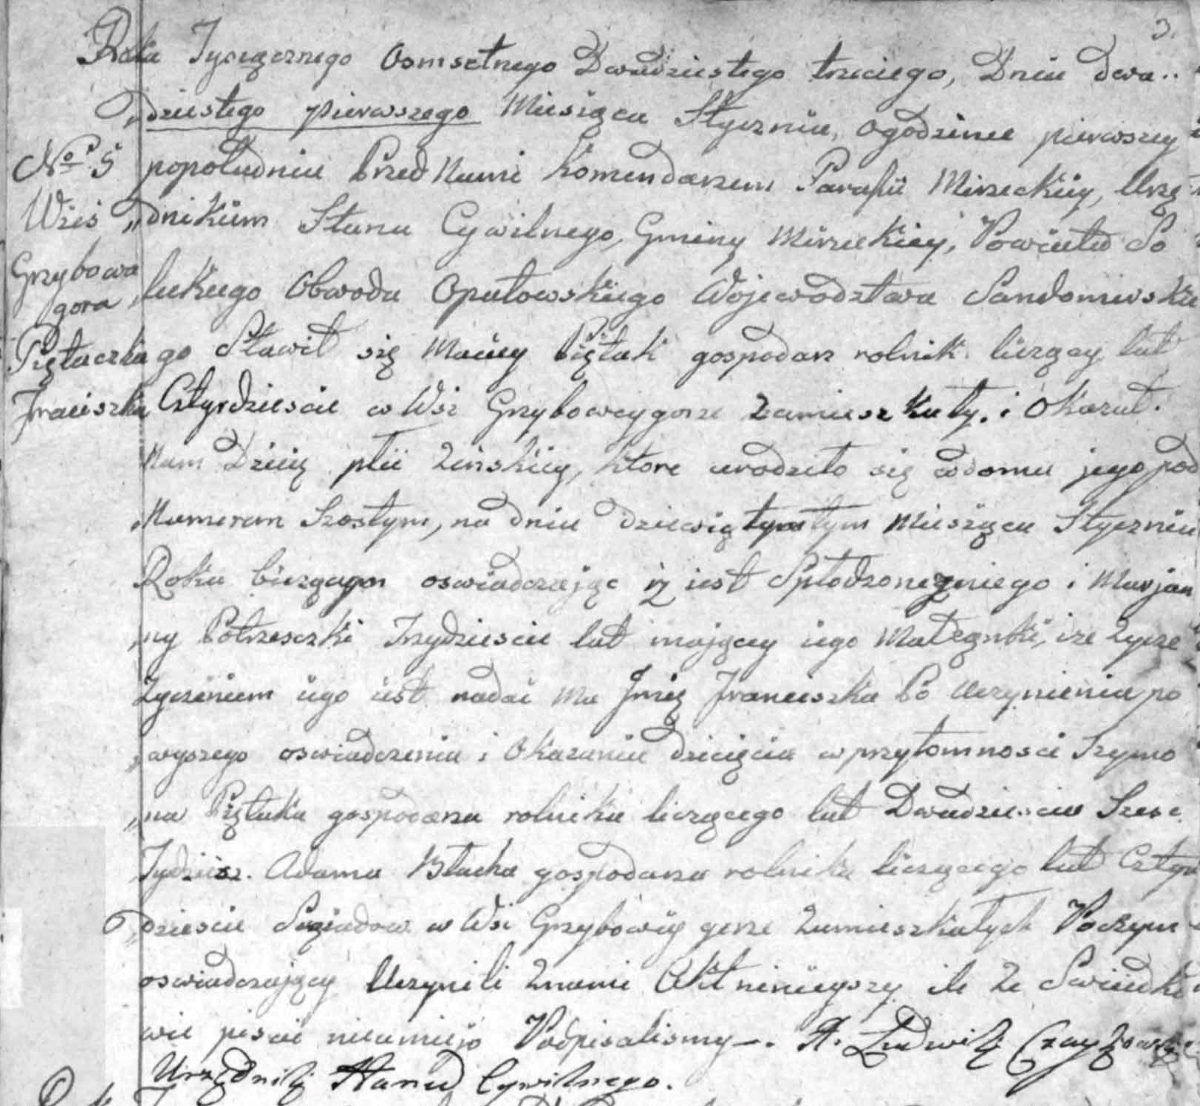 3.
Roku Tysiącznego Osmsetnego Dwudziestego trzeciego, Dnia dwu..
„dziestego pierwszego Miesiąca Stycznia, ogodzinie pierwszey
No. 5 popołudniu Przed Nami Komendarzem Parafii Mirzeckiey, Urzę
Wieś „dnikiem Stanu Cywilnego, Gminy Mirzeckiey, Powiatu So
Grzybowa „luckiego Obwodu Opatowskiego Woiewodztwa Sandomirskie
gora
Piętaczka go Stawił się Maciey Piętak gospodarz rolnik liczący lat
Franciszka Cztyrdzieście w Wsi Grzybowey gorze Zamieszkały. i Okazał.
Nam Dziecię płci Zeńskiey, które urodziło się w domu jego pod
„Numerem Szostym, na dniu dziewiętym Miesiąca Stycznia
Roku bieżącym oswiadczaiąc iż iest Spłodzone zniego i Marjan
„ny Trzydzieście lat maiącey iego Małżąnki, iże
Zyczeniem iego iest nadać mu Jmię Franciszka Po Uczynieniu po
„wyszego oswiadczenia i Okazaniu dziecięcia w przytomnosci Szymo
„na Piętaka gospodarza rolnika liczącego lat Dwadziescia Szesc
Tydziesz. Adama Błacha gospodarza rolnika liczącego lat Cztyr
„dzieście Sąsiadow w Wsi Grzybowey gorze Zamieszkałych Poczym
oswiadczaiący Uczynili Znami Akt ninieyszy ile Ze Swiadko
wie pisać nieumieją Podpisalismy —. X. Ludwik Czaykowski
Urzędnik Stanu Cywilnego.